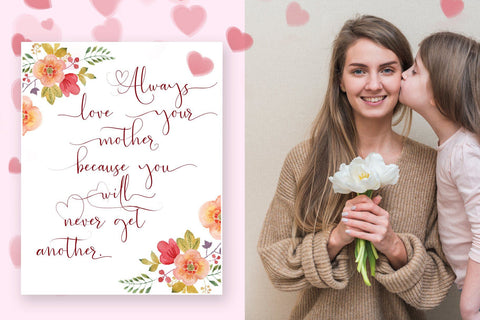 Always
love your
mother
because you
will
never get
another.